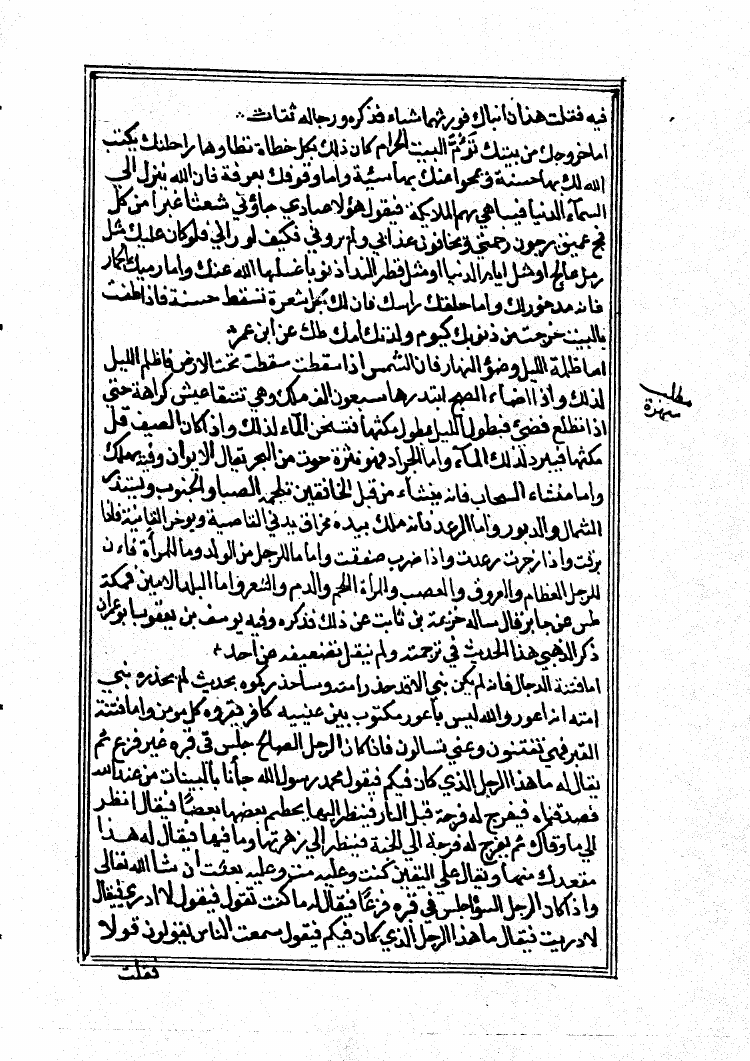 فيه فقلت هذان انباك فور ثهما شاء فذكره ورجاله ثقات
اما خروجك من بيتك تؤم البيت الحرام كان ذلك بكل خطاة تطاوها راحلتك يكتب
الله لك بها حسنة ويمحوا عنك بها سيئة واما وقوفك بعرفة فان الله ينزل الي
السماء الدنيا فيباهي بهم الملايكة فيقول هؤلا عبادي جاؤني شعثا غبرا من كل
فج عميق يرجون رحمتي ويخافون عذابي ولم يروني فكيف لو راوني فلو كان عليك مثل
رمل عالج او مثل ايام الدنيا او مثل قطر السماء ذنوبا غسلها الله عنك واما رميك الجمار
فانه مدخور لك واما حلقك راسك فان لك بكل شعرة تسقط حسنة فاذا طفت
بالبيت خرجت من ذنوبك كيوم ولدتك امك طك عن ابن عمر
اما ظلمة الليل وضؤ النهار فان الشمس اذا سقطت سقطت تحت الارض فاظلم الليل
لذلك واذا اضاء الصبح ابتدرها سبعون الف ملك وهي تتقاعس كراهة حتى
اذا تطلع فتضئ فبطول الليل يطول مكثها فتسخن الماء لذلك واذا كان الصيف قل
مكثها فيبرد لذلك الماء واما الجراد فهو نثرة حوت من البحر يقال الايوان وفيه يهلك
واما منشاء السحاب فانه ينشاء من قبل الخافقين تلجمه الصبا والجنوب ويستدبره
الشمال والدبور واما الرعد فانه ملك بيده مخراق يدني القاصية ويوخر الدانية فاذا
برقت واذا زجرت رعدت واذا ضرب صعقت واما ما للرجل من الولد وما للمرأة فان
للرجل العظام والعروق والعصب وللمرأة اللحم والدم والشعر واما البلد الامين فمكة
طس عن جابر قال ساله خزيمة بن ثابت عن ذلك فذكره وفيه يوسف بن يعقوب ابو عمران
ذكر الذهبي هذا الحديث في ترجمته ولم ينقل تضعيفه عن احد
اما فتنة الدجال فانه لم يكن نبي الا قد حذر امته وساحذركموه بحديث لم يحذره نبي
امته انه اعور والله ليس باعور مكتوب بين عينيه كافر يقروه كل مومن واما فتنة
القبر فبي تفتنون وعني تسالون فاذا كان الرجل الصالح جلس في قبره غير فزع ثم
يقال له ما هذا الرجل الذي كان فيكم فيقول محمد رسول الله جأنا بالبينات من عند الله
فصدقناه فيفرج له فرجة قبل النار فينظر اليها يحطم بعضها بعضا فيقال انظر
الي ما وقاك ثم يفرج له فرجة الي الجنة فينظر الي زهرتها وما فيها فيقال له هذا
مقعدك منها ويقال علي اليقين كنت وعليه مت وعليه تبعث ان شا الله تعالى
واذا كان الرجل السؤ اجلس في قبره فزعا فيقال له ما كنت تقول فيقول لا ادري فيقال
لا دريت فيقال ما هذا الرجل الذي كان فيكم فيقول سمعت الناس يقولون قولا
فقلت
مطلب